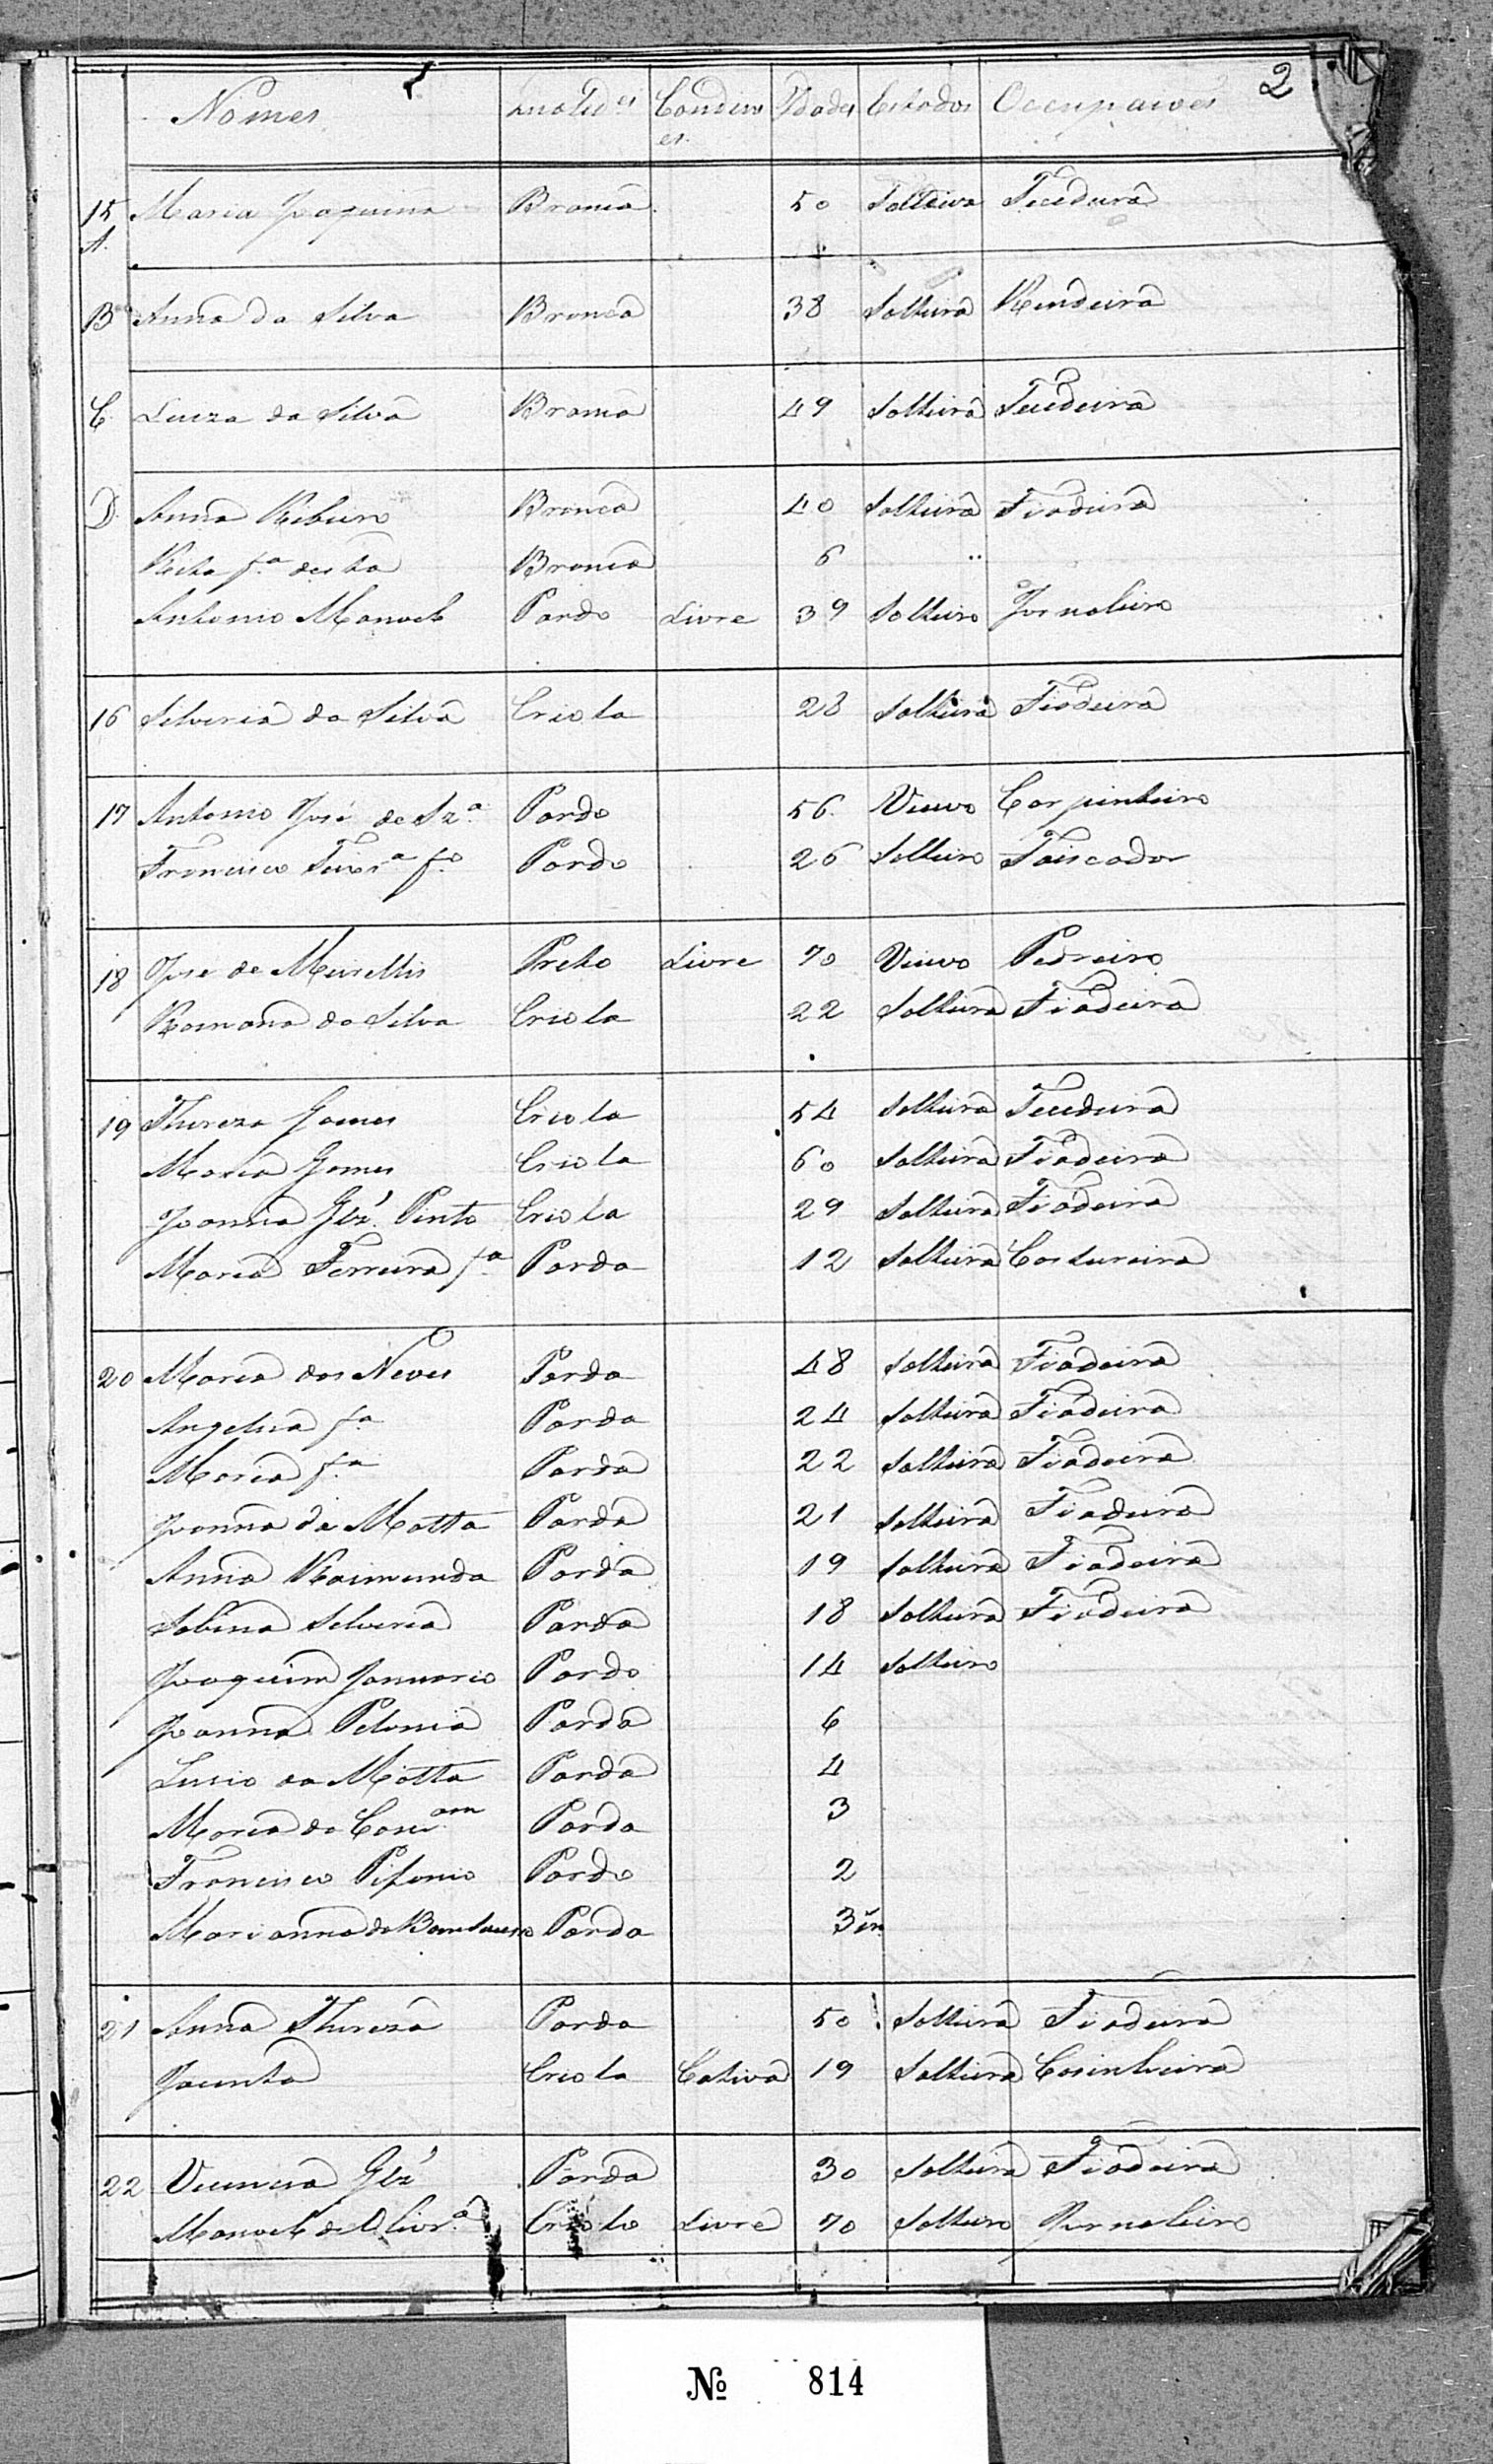 2
Nomes Qualid.es Condições Idades Estados Occupações
15 Maria Joaquina Branca 50 Solteira Tecedeira
A.
B Anna da Silva Branca 38 Solteira Rendeira
C Luiza da Silva Branca 49 Solteira Tecedeira
D. Anna Ribeiro Branca 40 Solteira Fiadeira
Rita f.a desta Branca 6 "
Antonio Manoel Pardo Livre 39 Solteiro Jornaleiro
16 Silveria da Silva Criola 28 Solteira Fiadeira
17 Antonio José de Sz.a Pardo 56 Viuvo Carpinteiro
Francisco f.o Pardo 26 Solteiro Faiscador
18 Jose de Meirellis Preto Livre 70 Viuvo Pedreiro
Romana da Silva Criola 22 Solteira Fiadeira
19 Thereza Gomes Criola 54 Solteira Tecedeira
Maria Gomes Criola 60 Solteira Fiadeira
Joanna Glz' Pinto Criola 29 Solteira Fiadeira
Maria Ferreira f.a Parda 12 Solteira Costureira
20 Maria das Neves Parda 48 Solteira Fiadeira
Angelica f.a Parda 24 Solteira Fiadeira
Maria f.a Parda 22 Solteira Fiadeira
Joanna da Motta Parda 21 Solteira Fiadeira
Anna Raimunda Parda 19 Solteira Fiadeira
Sabina Silveria Parda 18 Solteira Fiadeira
Joaquim Januario Pardo 14 Solteiro
Joanna Petonia Parda 6
Lucio da Motta Parda 4
Maria da Conc.am Parda 3
Francisco Pifonio Pardo 2
Marianna do Bomsucesso Parda 3 m
21 Anna Thereza Parda 50 Solteira Fiadeira
Jacinta Criola Cativa 19 Solteira Cosinheira
22 Vicencia Glz' Parda 30 Solteira Fiadeira
Manoel de Olivr.a Criolo Livre 70 Solteiro Jornaleiro
No 814